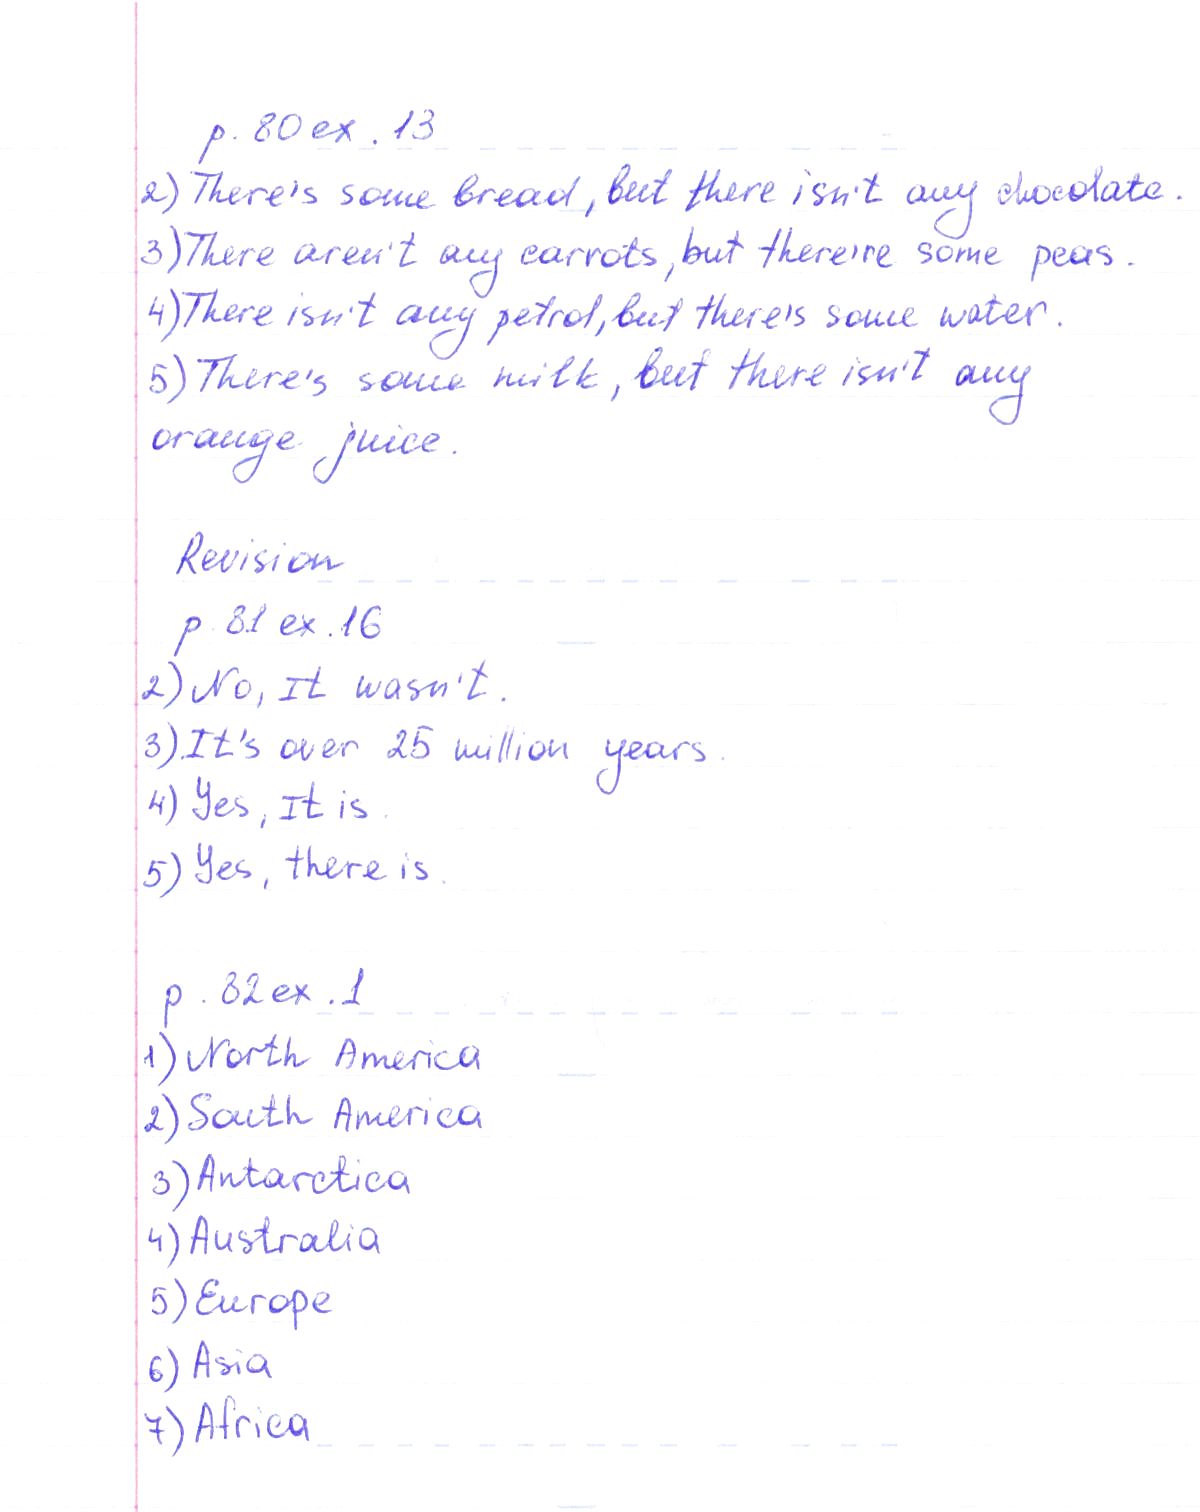 p. 80 ex. 13
2) There's some bread, but there isn't any chocolate.
3) There aren't any carrots, but there're some peas.
4) There isn't any petrol, but there's some water.
5) There's some milk, but there isn't any
orange juice.
Revision
p. 81 ex. 16
2) No, It wasn't.
3) It's over 25 million years.
4) Yes, It is.
5) Yes, there is.
p. 82 ex. 1
1) North America
2) South America
3) Antarctica
4) Australia
5) Europe
6) Asia
7) Africa